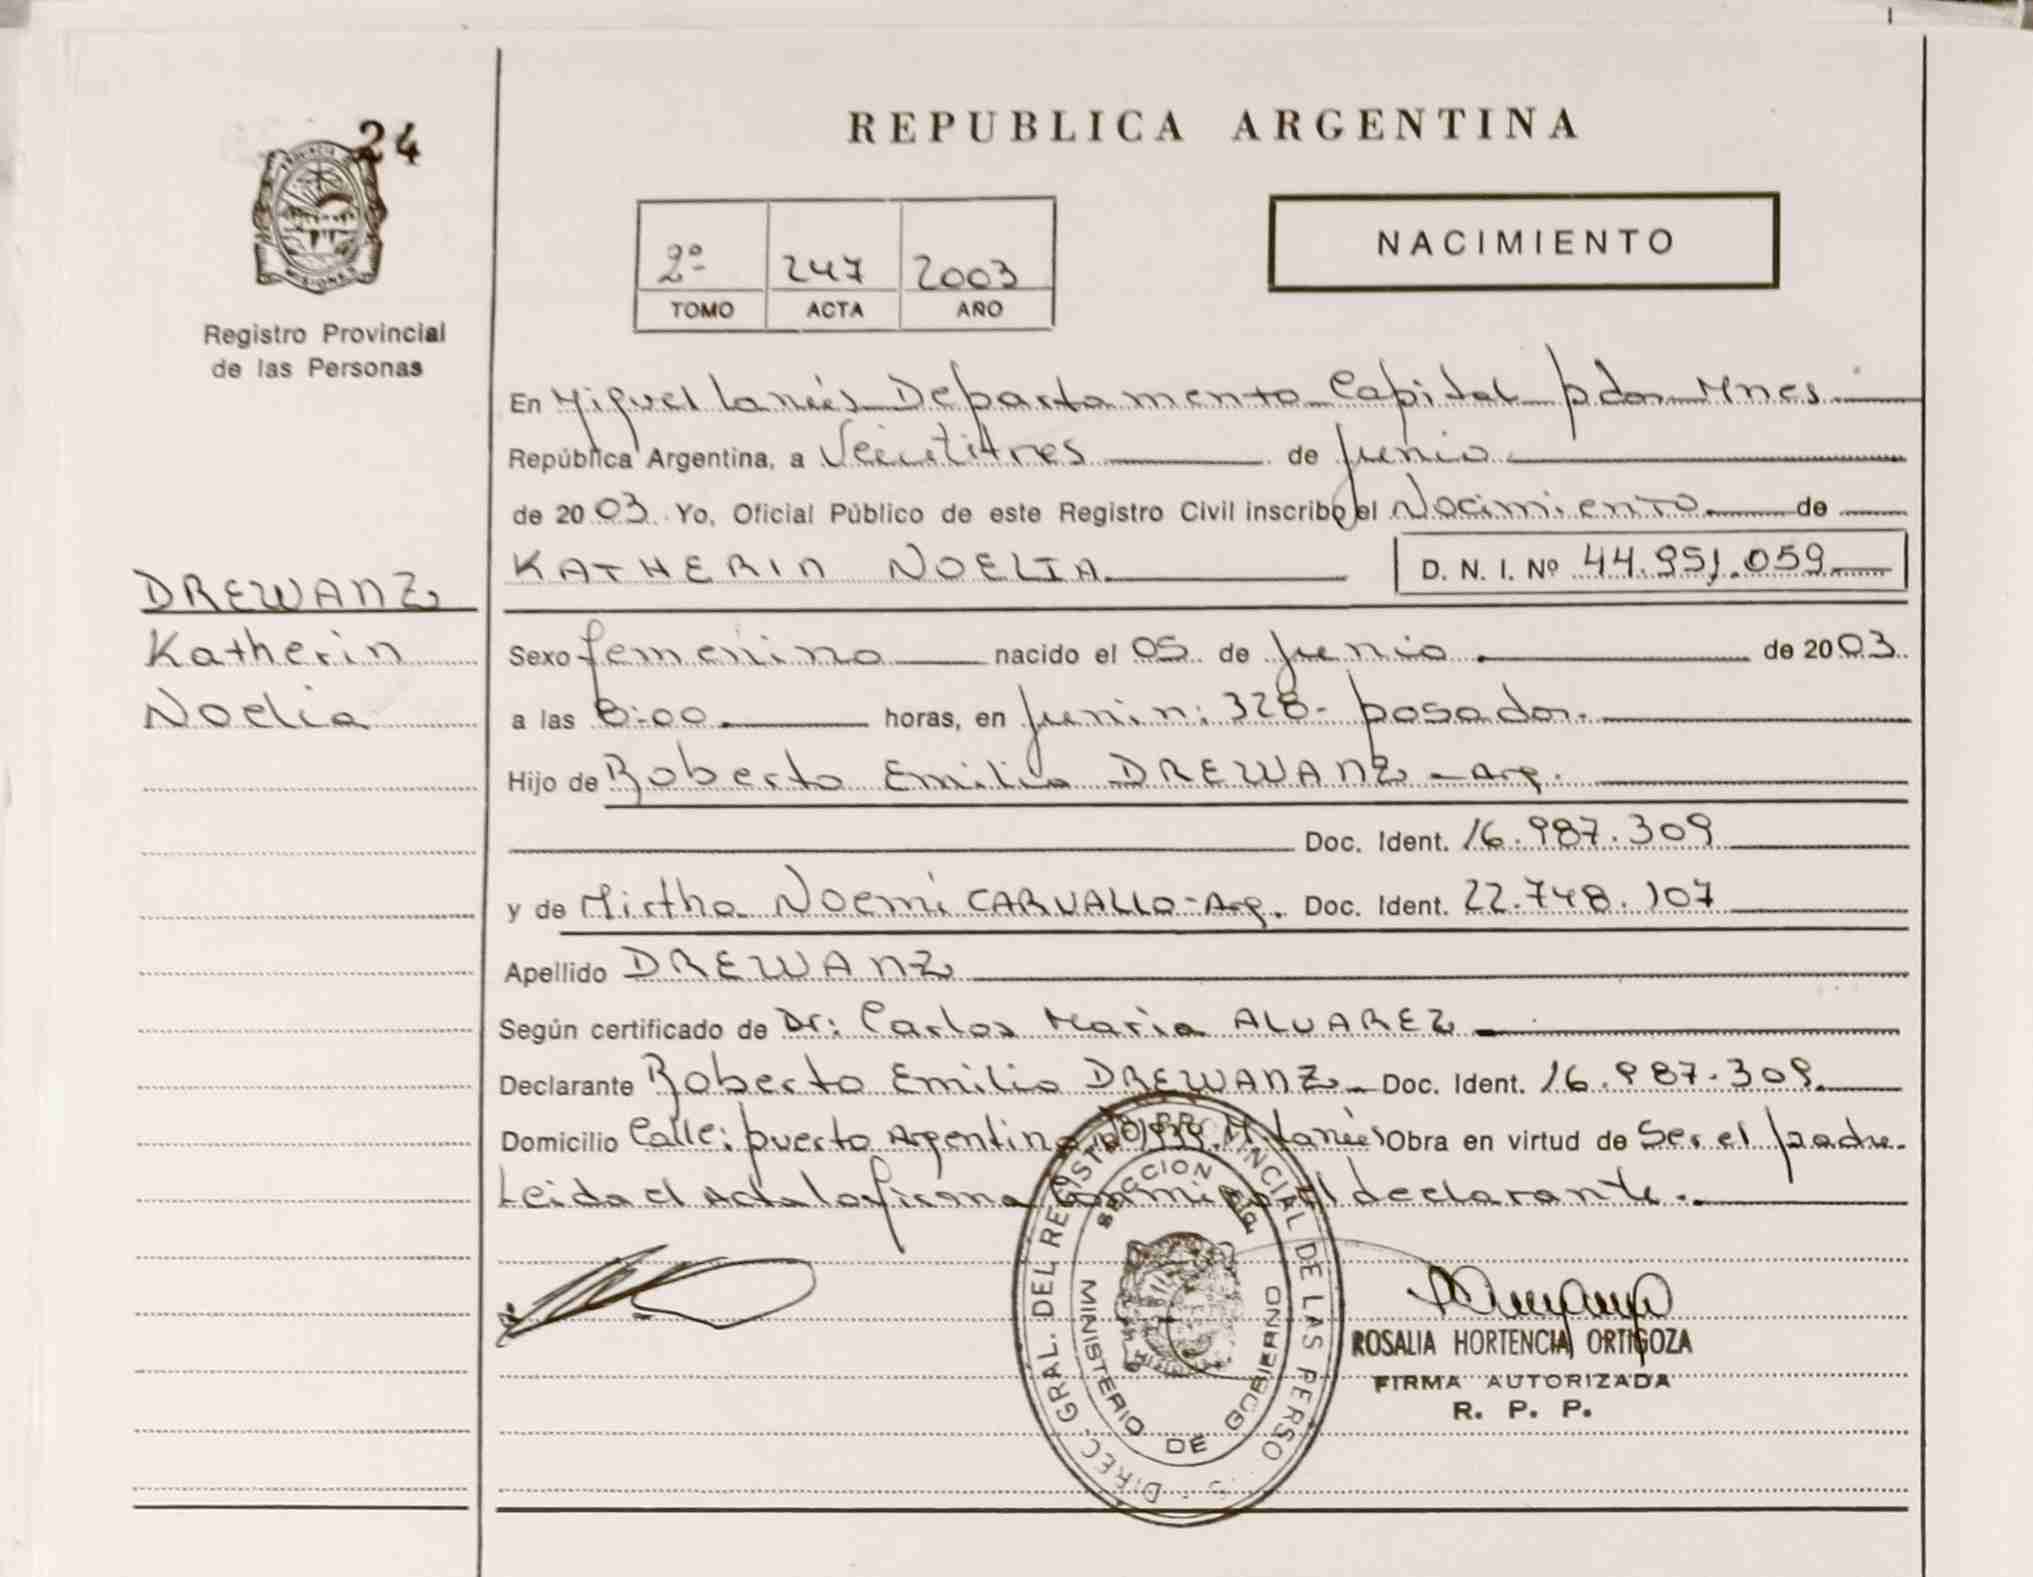 24
PROVINCIA
MISIONES
Registro Provincial
de las Personas
REPUBLICA ARGENTINA
2º 247 2003
TOMO ACTA AÑO
NACIMIENTO
En Miguel Laniés Departamento Capital pdas Mnes
República Argentina, a Veintitres de Junio
de 2003 Yo, Oficial Público de este Registro Civil inscribo el Nacimiento de
KATHERIN NOELIA D. N. I. Nº 44.951.059
DREWANZ
Katherin
Noelia
Sexo femenino nacido el 05 de Junio de 2003
a las 8:00 horas, en Junin: 328- posadas.
Hijo de Roberto Emilio DREWANZ - Arg.
Doc. Ident. 16.987.309
y de Mirtha Noemi CARVALLO - Arg. Doc. Ident. 22.748.107
Apellido DREWANZ
Según certificado de Dr: Carlos Maria ALVAREZ
Declarante Roberto Emilio DREWANZ - Doc. Ident. 16.987.309
Domicilio Calle: puerto Argentino M. Laniés Obra en virtud de Ser el padre
Leida el Acta la firma Conmigo El declarante.
DIREC. GRAL. DEL REGISTRO PROVINCIAL DE LAS PERSO
SECCION
MINISTERIO DE GOBIERNO
ROSALIA HORTENCIA ORTIGOZA
FIRMA AUTORIZADA
R. P. P.